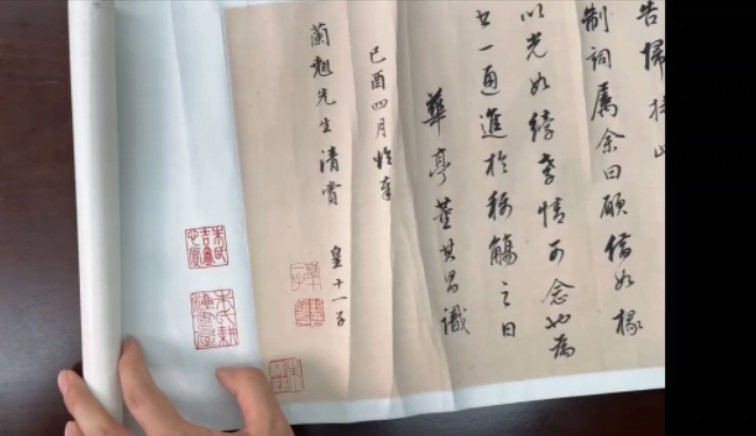 告
制詞屬余曰願倩如椽
以光如綍孝情可念也為
書一通進於稱觴之日
華亭董其昌識
己酉四月臨奉
蘭翹先生清賞 皇十一子